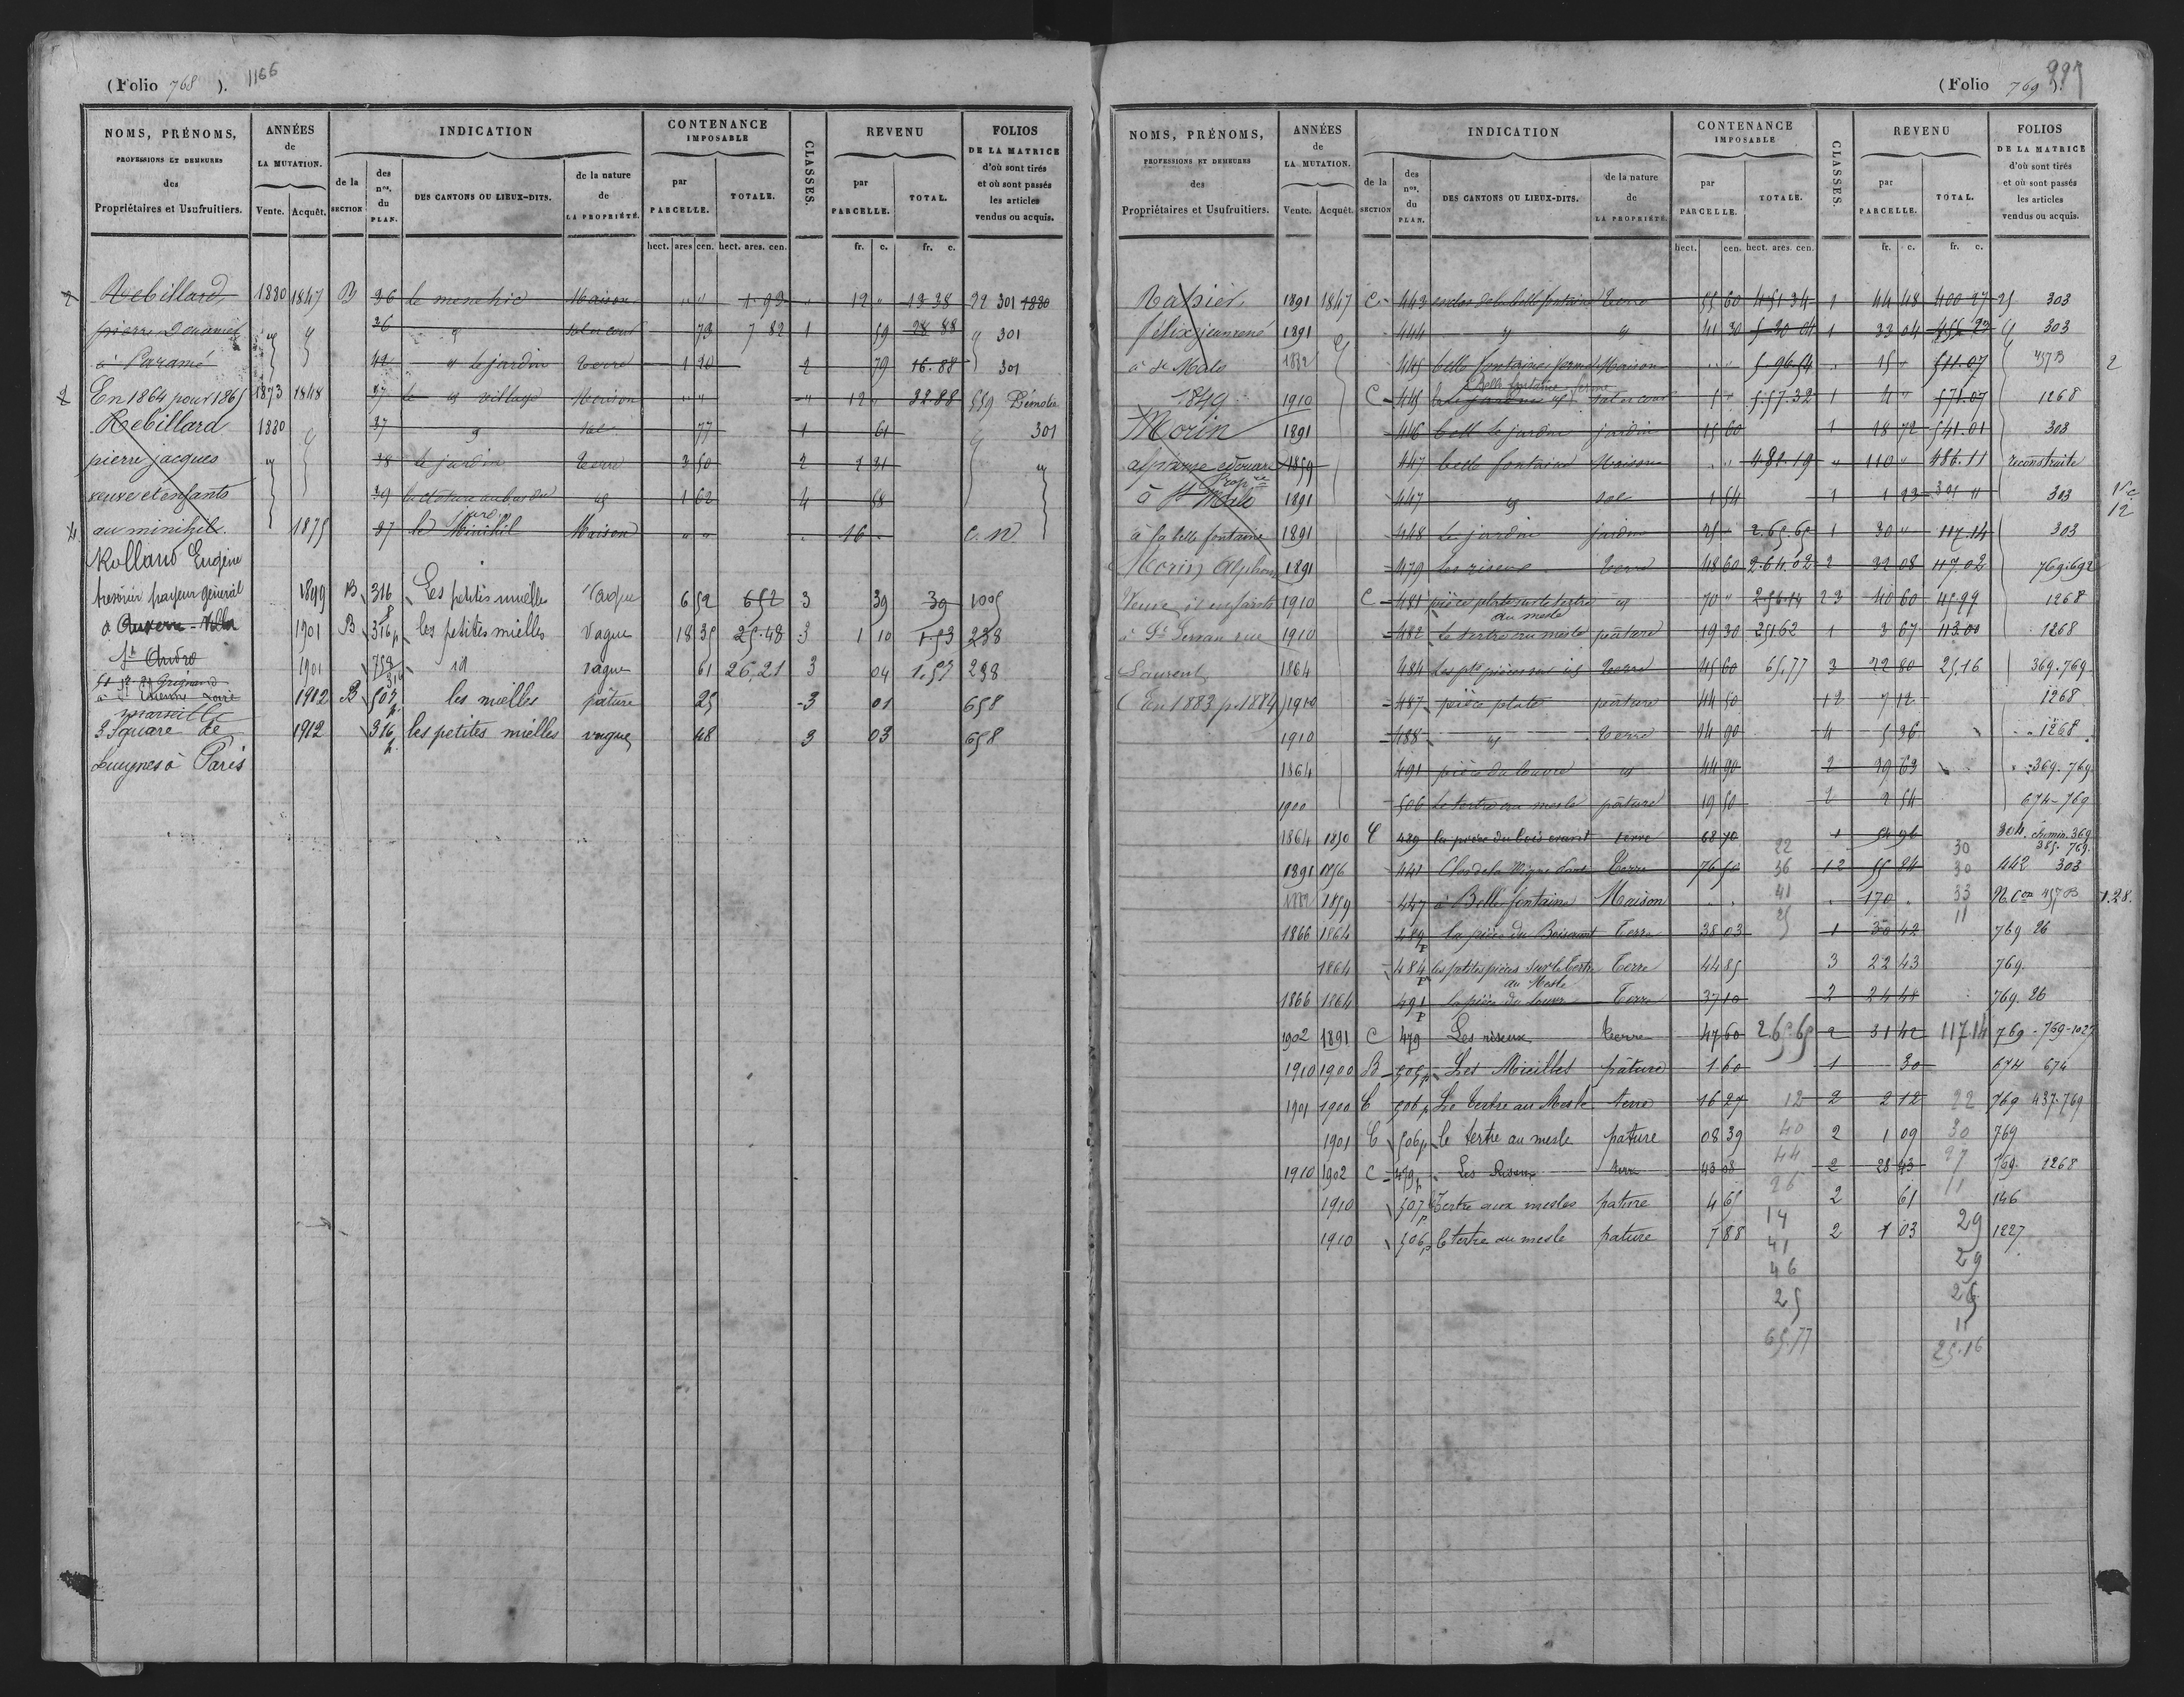 (Folio 768 ). 1166
NOMS, PRÉNOMS, PROFESSIONS ET DEMEURES des Propriétaires et Usufruitiers.
ANNÉES de LA MUTATION. Vente. Acquêt.
INDICATION de la SECTION des nos. du PLAN. DES CANTONS OU LIEUX-DITS. de la nature de LA PROPRIÉTÉ.
CONTENANCE IMPOSABLE par PARCELLE. TOTALE.
CLASSES.
REVENU par PARCELLE. TOTAL.
FOLIOS DE LA MATRICE d'où sont tirés et où sont passés les articles vendus ou acquis.
hect. ares cen. hect. ares. cen. fr. c. fr. c.
2 Rebillard 1880 1847 B 36 le Maison " " 12 " 13 38 22 301 1880
pierre 36 sol et cour 73 7 82 1 59 28 88 301
à Paramé 42 le jardin terre 1 20 2 79 16.88 301
2 En 1864 pour 1865 1873 1848 37 le village Maison " " 12 " 22 88 559 Démolie
Rebillard 1880 37 sol 77 1 61 301
pierre jacques 38 le jardin terre 3 50 2 2 31
veuve et enfants 39 1 62 4 58
au minihil. 1875 37 le Minihil Maison " " 16 " C. N.
Rolland Eugène
trésorier payeur général 1899 B 316 Les petites mielles Vague 6 52 652 3 39 39 1005
à Auxerre - Villa 1901 B 316 p les petites mielles Vague 18 35 25.48 3 1 10 1.53 238
St André 1901 758 id vague 61 26,21 3 04 1.57 238
à St Etienne Loire 1912 B 505 p. les mielles pâture 25 3 01 658
marseille
3 Square de 1912 316 p. les petites mielles vague 48 3 03 658
Luynes à Paris
(Folio 769 ).
NOMS, PRÉNOMS, PROFESSIONS ET DEMEURES des Propriétaires et Usufruitiers.
ANNÉES de LA MUTATION. Vente. Acquêt.
INDICATION de la SECTION des nos. du PLAN. DES CANTONS OU LIEUX-DITS. de la nature de LA PROPRIÉTÉ.
CONTENANCE IMPOSABLE par PARCELLE. TOTALE.
CLASSES.
REVENU par PARCELLE. TOTAL.
FOLIOS DE LA MATRICE d'où sont tirés et où sont passés les articles vendus ou acquis.
hect. cen. hect. ares. cen. fr. c. fr. c.
1891 1847 C 443 enclos de la belle fontaine terre 55 60 4.51.34 1 44 48 400 27 303
félix jean rené 1891 444 41 30 5 30 04 1 33 04 303
à St Malo 1882 445 belle fontaine ferme Maison " " 5 96 54 " 15 " 511.07 457 B 2
1849 1910 C 445 Belle fontaine ferme sol et cour 5 " 5.57.32 1 4 " 571.07 1268
Morin 1891 446 le jardin jardin 15 60 1 18 72 541.01 303
alphonse edouard 1859 447 belle fontaine Maison " " 482.19 " 110 " 486.11 reconstruite
propre à St Malo 1891 447 sol 1 54 1 1 23 301 " 303
à la belle fontaine 1891 448 le jardin jardin 25 " 2.65.65 1 30 " 117.14 303
Morin Alphonse 1891 479 les riseux terre 48 60 2.64.02 2 32 08 117.02 769.692
Veuve et enfants 1910 C 481 pièce plate sur le tertre au mesle 70 " 2.56.14 2 3 40 60 1268
à St Servan rue 1910 482 le tertre au mesle pâture 19 30 251.62 1 3 67 113.00 1268
Laurent 1864 484 les ptes pièces sur id terre 45 60 65.77 3 22 80 25.16 369.769
(En 1883 p. 1884) 1910 487 pièce plate pâture 44 50 1 2 7 12 1268
1910 488 terre 14 90 4 5 36 1268
1864 491 pièce du louvre 44 90 2 29 63 369.769
1900 506 le tertre au mesle pâture 19 50 2 2 54 674-769
1864 1850 C 489 terre 68 70 1 54 96 304. chemin.369. 385. 769.
1891 1856 441 Clos de la Vigne Terre 76 50 1 2 55 84 442 303
1882 1859 447 à Belle fontaine Maison " " " 170 " N. Con 457 B 1.28.
1866 1864 489 p la pièce du Terre 38 03 1 30 42 769 26
1864 484 p les petites pièces sur le tertre au Mesle Terre 44 85 3 22 43 769.
1866 1864 491 p la pièce du louvre Terre 37 10 2 24 48 769. 26
1902 1891 C 479 Les riseux terre 47 60 2.65 65 2 31 42 117.14 769 - 769-1027
1910 1900 B 505 p Les Mielles pâture 1 60 1 30 674 674
1901 1900 C 506 p Le tertre au Mesle terre 16 27 2 2 12 769 437-769
1901 C 506 p le tertre au mesle pature 08 39 2 1 09 769
1910 1902 C 479 p Les Riseux terre 43 08 2 28 43 769. 1268
1910 507 p Tertre aux mesles pature 4 65 2 61 146
1910 506 p le tertre au mesle pature 7 88 2 1 03 1227
22 30
36 30
41 33
25 11
12 22
40 30
44 27
26 11
14 29
41 29
46 26
25 11
65.77 25.16